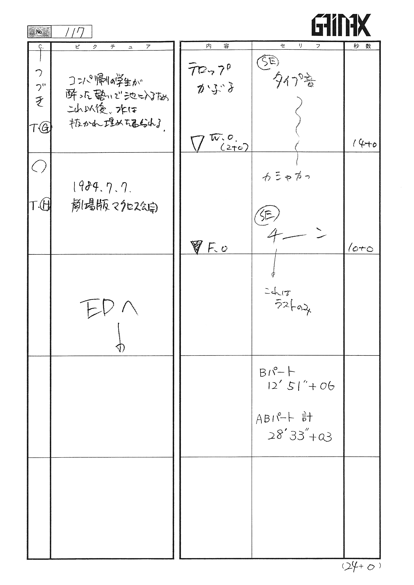 GAINAX
No. 117
C
ピクチュア
内容
セリフ
秒数
つづき
T.G
コンパ帰りの学生が
酔った勢いで池に入るため
これ以後、水は
抜かれ埋め立てられる。
テロップ
かぶる
W.O.
(2+0)
SE
タイプ音
14+0
T.H
1984.7.7.
劇場版マクロス公開
F.O
カシャカッ
SE
チーン
10+0
これは
ラストのみ
EDへ
Bパート
12'51"+06
ABパート 計
28'33"+03
(24+0)